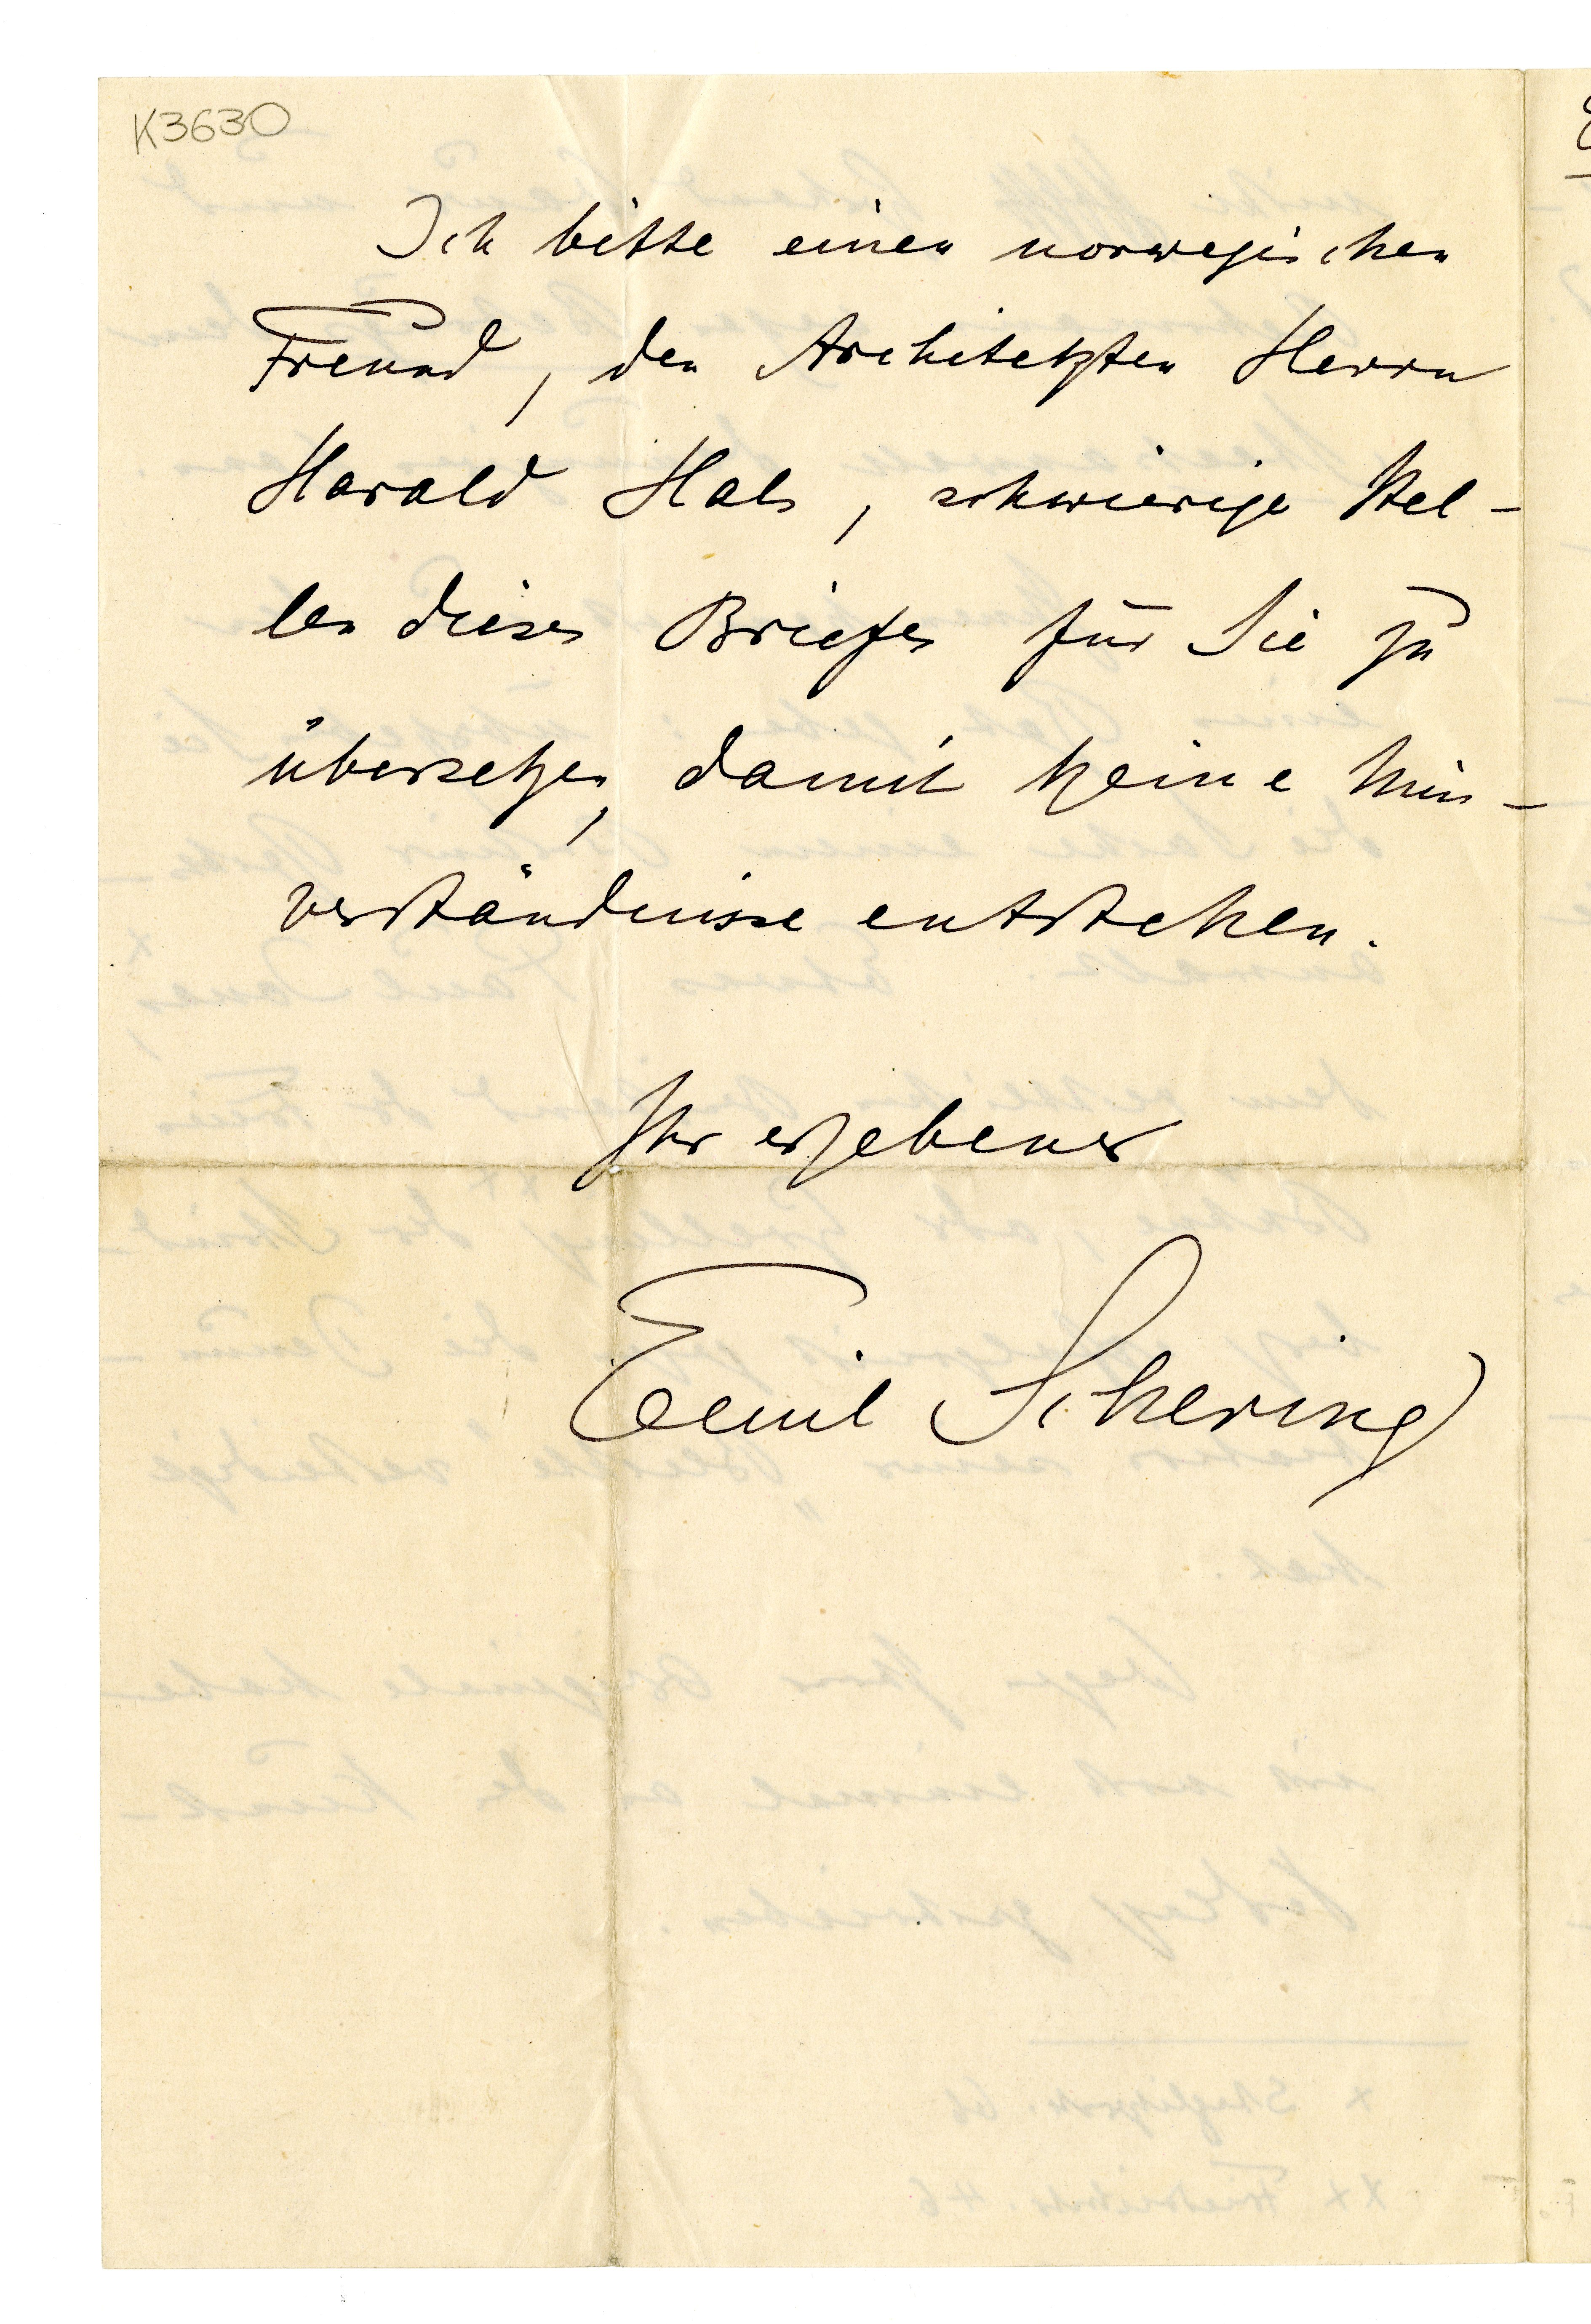 K3630
Ich bitte einen norwegischen
Freund, den Architekten Herrn
Harald Hals, schwierige Stel-
len dieses Briefes für Sie zu
übersetzen, damit keine Miss-
verständnisse entstehen.
Ihr ergebener
Emil Schering